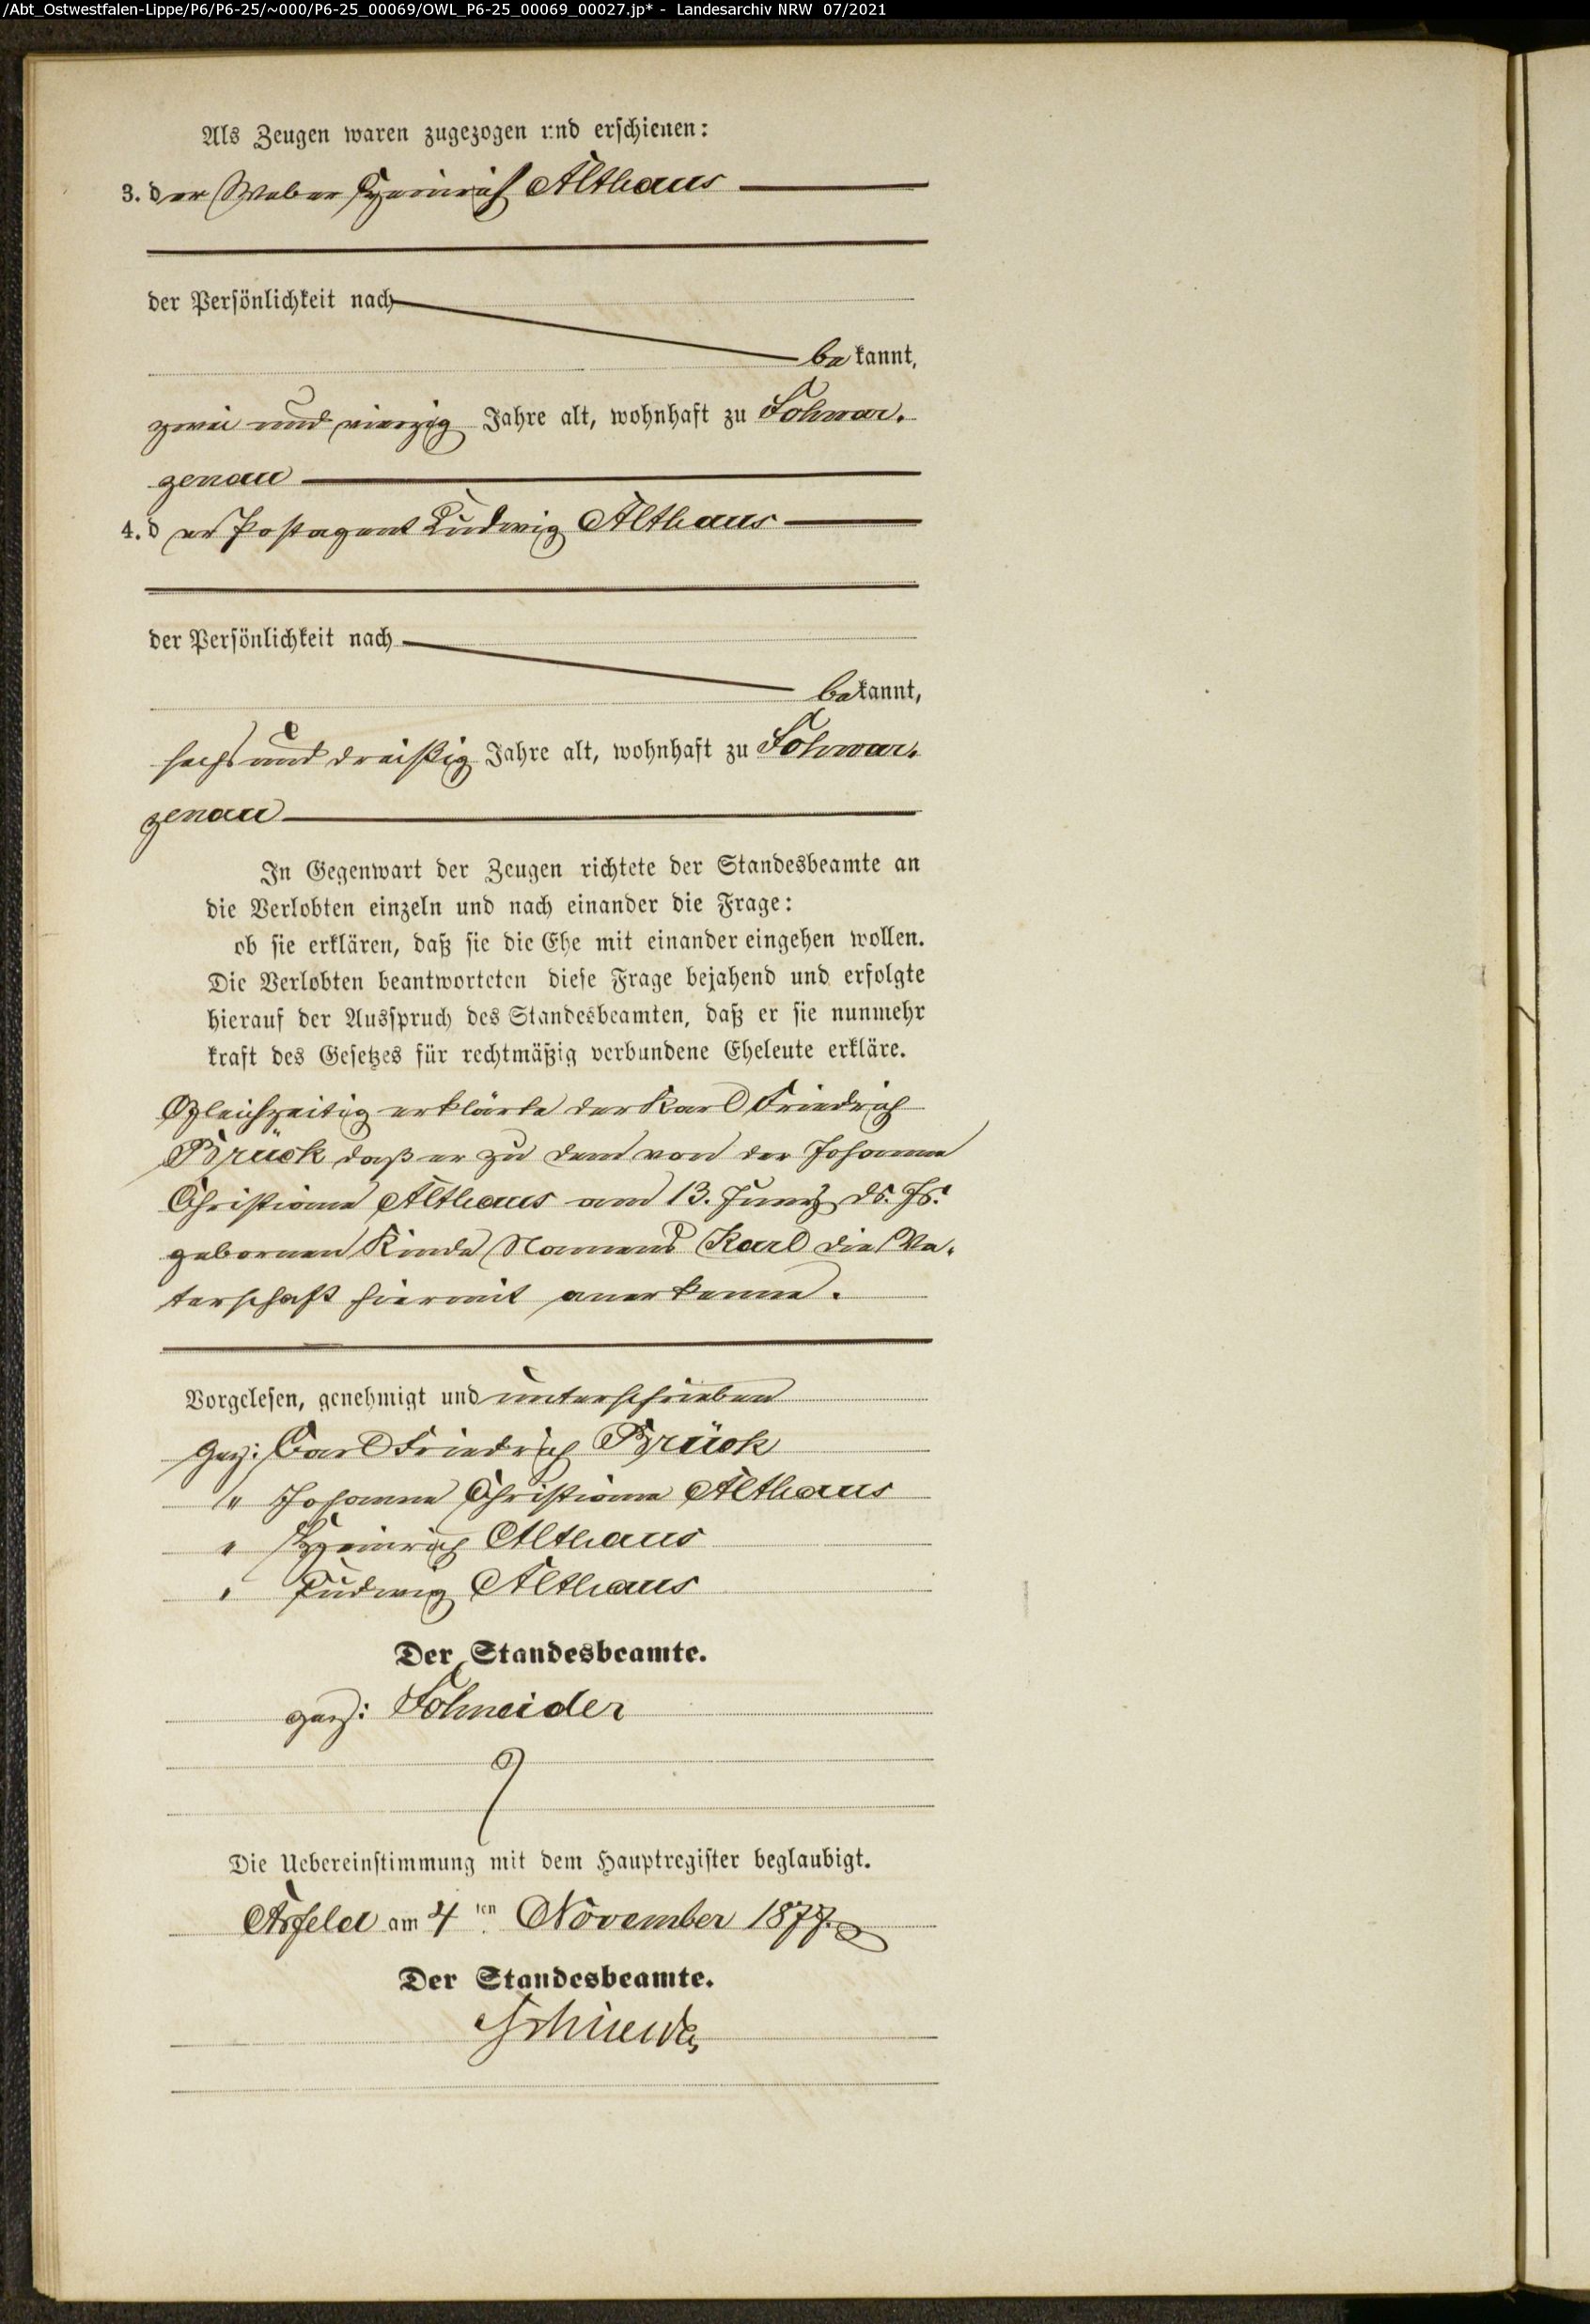 /Abt_Ostwestfalen-Lippe/P6/P6-25/~000/P6-25_00069/OWL_P6-25_00069_00027.jp* - Landesarchiv NRW 07/2021
Als Zeugen waren zugezogen und erschienen:
3. der Weber Heinrich Althaus
der Persönlichkeit nach
bekannt,
zwei und vierzig Jahre alt, wohnhaft zu Schwar-
zenau
4. der Postagent Ludwig Althaus
der Persönlichkeit nach
bekannt,
sechs und dreißig Jahre alt, wohnhaft zu Schwar-
zenau
In Gegenwart der Zeugen richtete der Standesbeamte an
die Verlobten einzeln und nach einander die Frage:
ob sie erklären, daß sie die Ehe mit einander eingehen wollen.
Die Verlobten beantworteten diese Frage bejahend und erfolgte
hierauf der Ausspruch des Standesbeamten, daß er sie nunmehr
kraft des Gesetzes für rechtmäßig verbundene Eheleute erkläre.
Gleichzeitig erklärte der Karl Friedrich
Brück daß er zu dem von der Johanne
Christiane Althaus am 13. ds. Js.
gebornen Kinde Namens Karl die Va-
terschaft hiermit anerkenne.
Vorgelesen, genehmigt und unterschrieben
gez: Carl Friedrich Brück
" Johanne Christiane Althaus
" Heinrich Althaus
" Ludwig Althaus
Der Standesbeamte.
gez: Schneider
Die Uebereinstimmung mit dem Hauptregister beglaubigt.
Arfeld am 4ten November 1877.
Der Standesbeamte.
Schneider